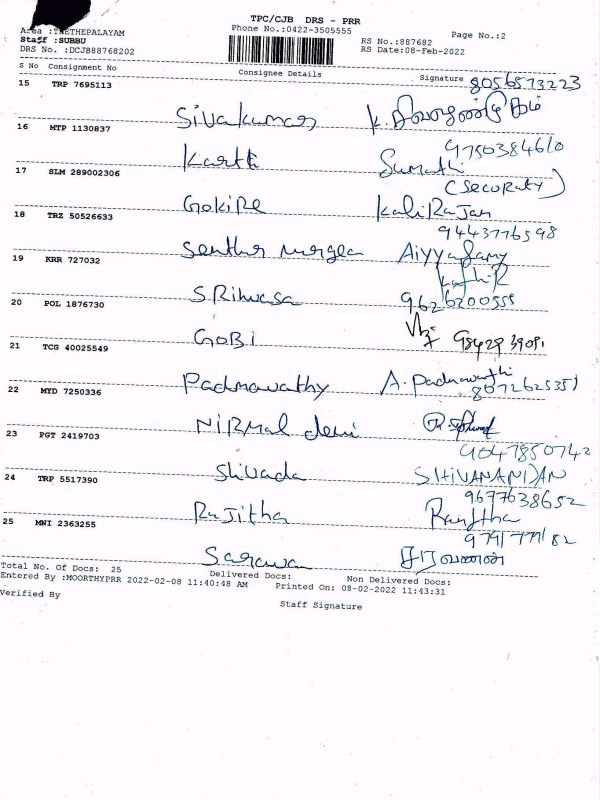 TPC/CJB DRS - PRR
Area :THETHEPALAYAM Phone No.:0422-3505555 Page No.:2
Staff :SUBBU RS No.:887682
DRS No. :DCJB88768202 RS Date:08-Feb-2022
S No Consignment No Consignee Details Signature
8056573223
15 TRP 7695113
Sivakumar
16 MTP 1130837 9750384610
Kartk Sumathi
17 SLM 289002306 (Securaty)
Gokire KaliRajan
18 TRZ 50526633 9443776598
Senthur murgea Aiyyasamy
19 KRR 727032 Kathir
SRihvasa 9626200555
20 POL 1876730
GOBI
21 TCG 40025549
Padmavathy A. Padmavathi
22 MYD 7250336 8072625351
NIRMal devi
23 PGT 2419703 9047850742
Shivada SHIVANANDAN
24 TRP 5517390 9677638652
Rajitha Ranjtha
25 MNI 2363255 9791777182
Sarawa சரவணன்
Total No. Of Docs: 25 Delivered Docs: Non Delivered Docs:
Entered By :MOORTHYPRR 2022-02-08 11:40:48 AM Printed On: 08-02-2022 11:43:31
Verified By Staff Signature